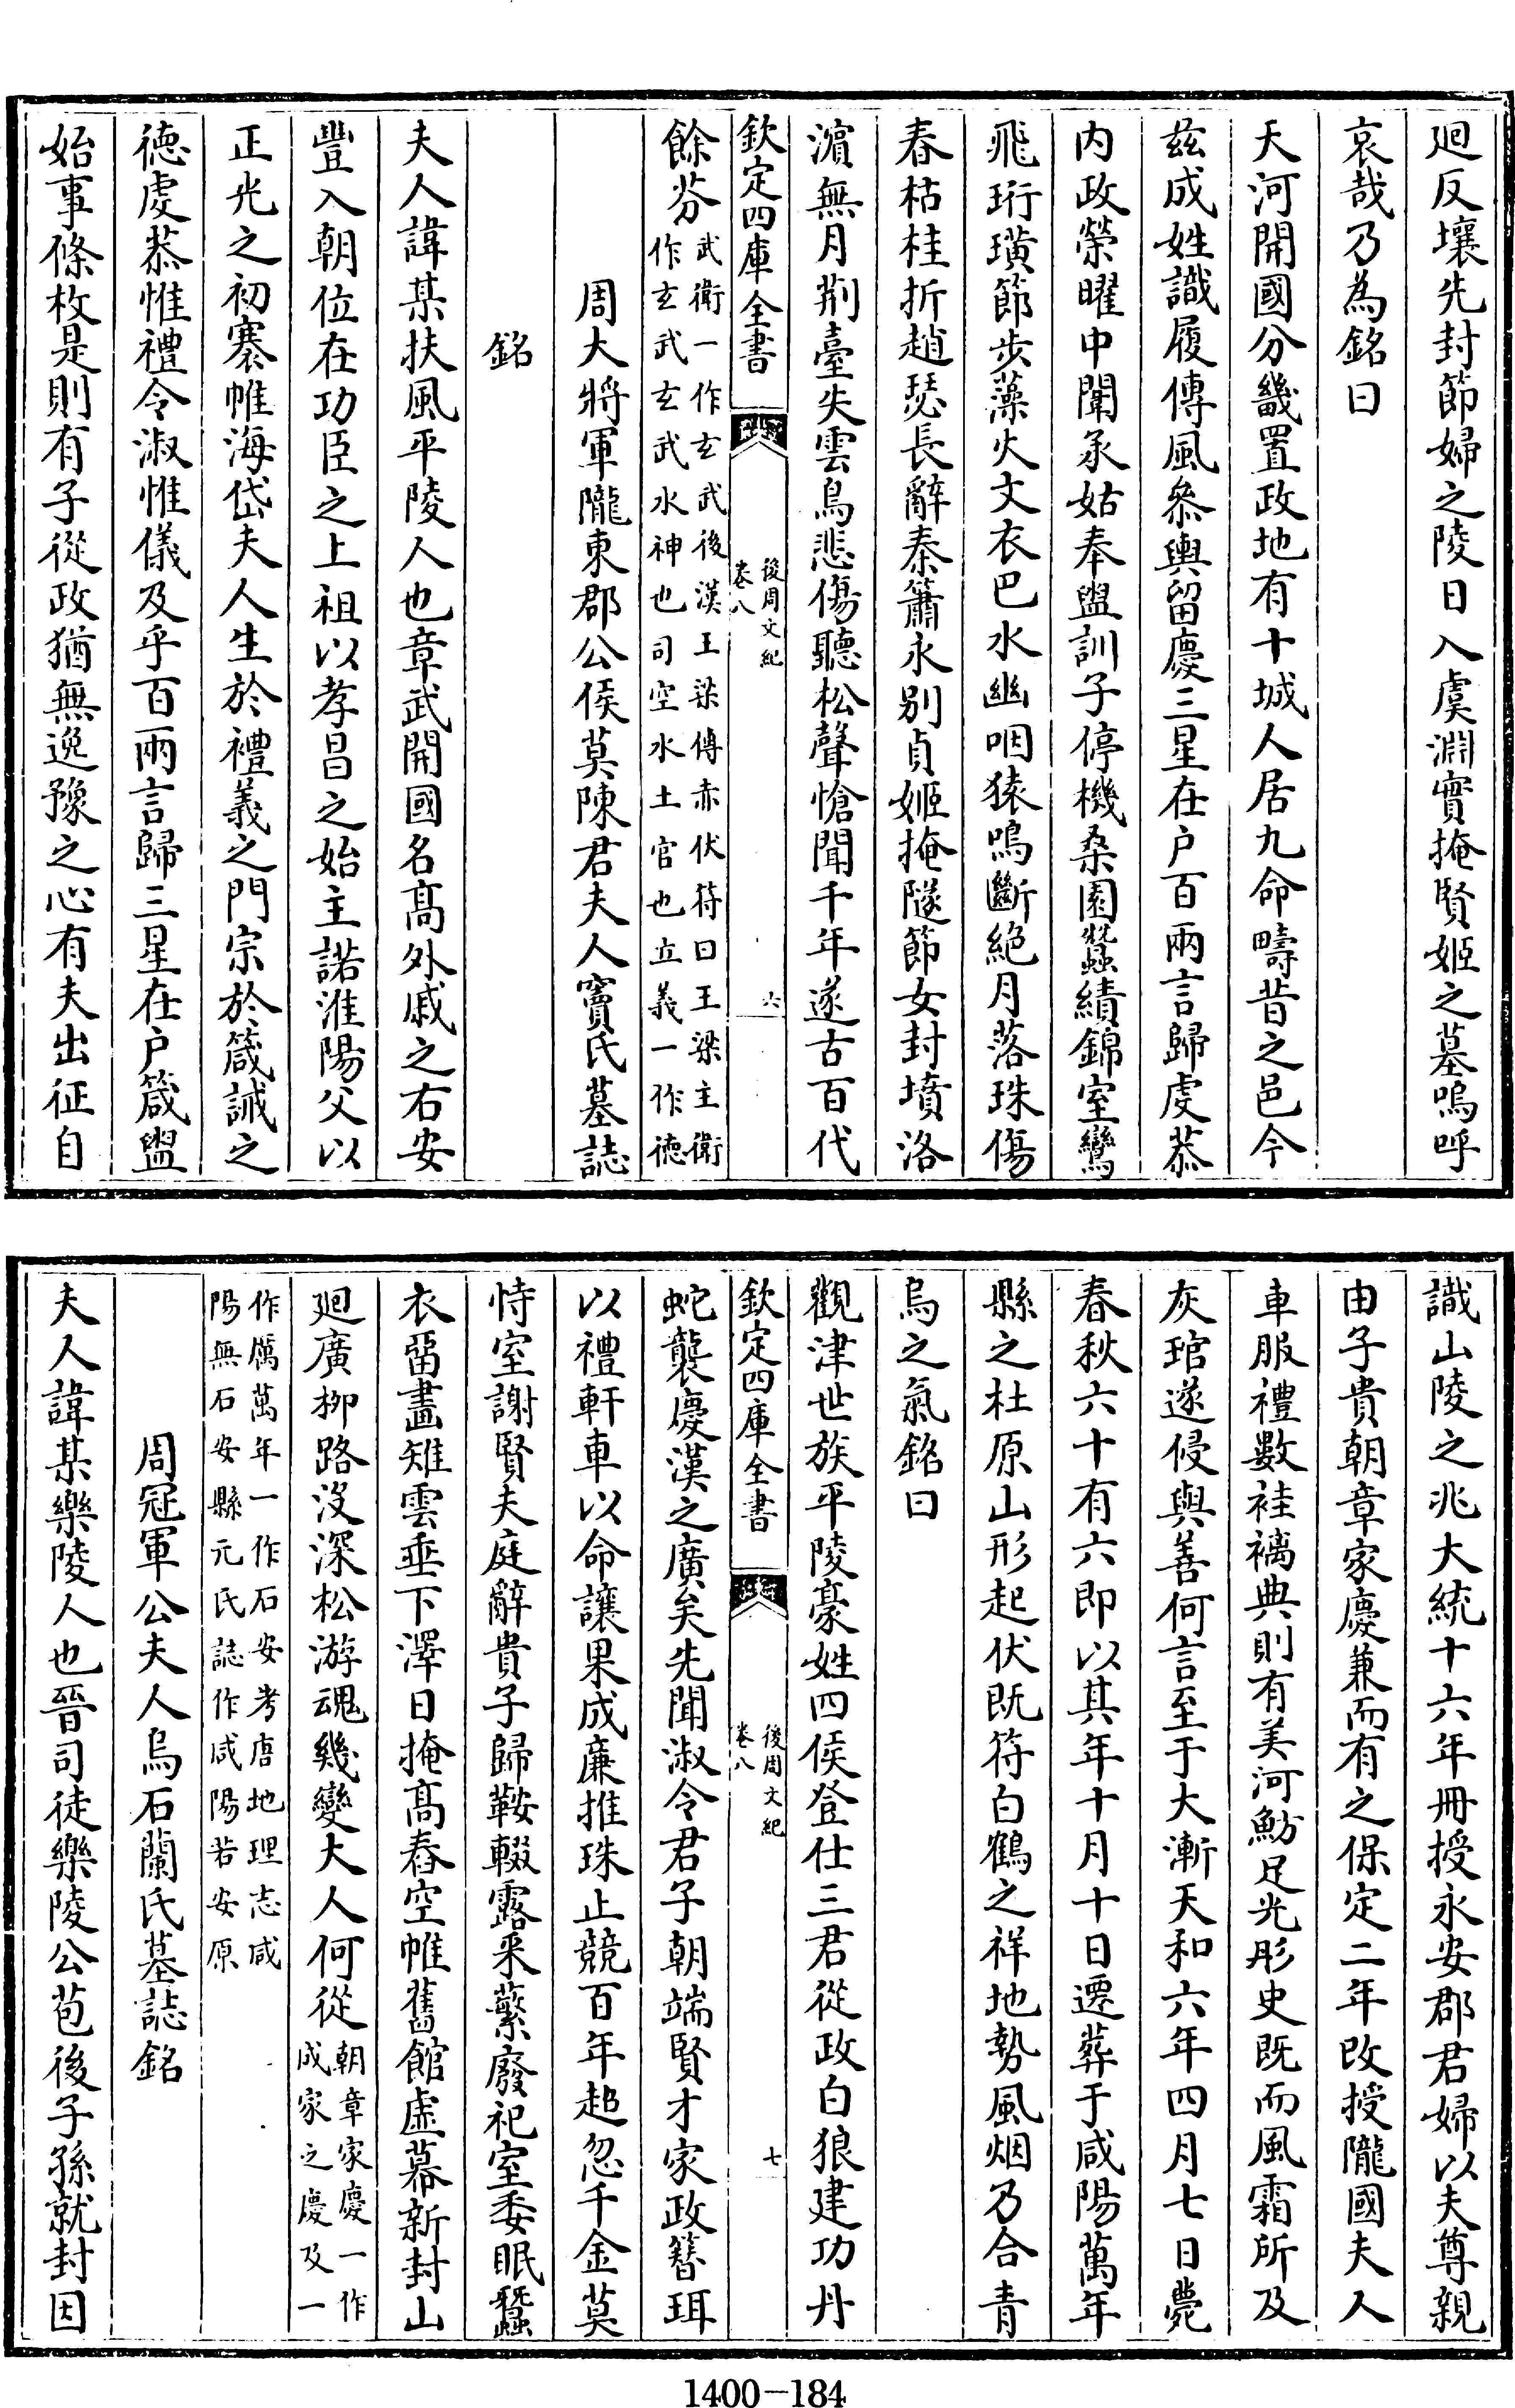 廻反壤先封節婦之陵日入虞淵實掩賢姬之墓嗚呼
哀哉乃為銘曰
天河開國分畿置政地有十城人居九命疇昔之邑今
兹成姓識履傳風參輿留慶三星在户百兩言歸虔恭
内政榮曜中闈承姑奉盥訓子停機桑園蠶績錦室鸞
飛珩璜節步藻火文衣巴水幽咽猿鳴斷絶月落珠傷
春枯桂折趙瑟長辭秦簫永别貞姬掩隧節女封墳洛
濵無月荆臺失雲鳥悲傷聽松聲愴聞千年遂古百代
欽定四庫全書
後周文紀
卷八
六
餘芬
武衛一作玄武後漢王梁傳赤伏符曰王梁主衛
作玄武玄武水神也司空水土官也立義一作德
周大將軍隴東郡公侯莫陳君夫人竇氏墓誌
銘
夫人諱某扶風平陵人也章武開國名髙外戚之右安
豐入朝位在功臣之上祖以孝昌之始主諾淮陽父以
正光之初褰帷海岱夫人生於禮義之門宗於箴誡之
德虔恭惟禮令淑惟儀及乎百兩言歸三星在户箴盥
始事條枚是則有子從政猶無逸豫之心有夫出征自
識山陵之兆大統十六年冊授永安郡君婦以夫尊親
由子貴朝章家慶兼而有之保定二年改授隴國夫人
車服禮數袿襹典則有美河魴足光彤史既而風霜所及
灰琯遂侵與善何言至于大漸天和六年四月七日薨
春秋六十有六即以其年十月十日遷葬于咸陽萬年
縣之杜原山形起伏既符白鶴之祥地勢風烟乃合青
烏之氣銘曰
觀津世族平陵豪姓四侯登仕三君從政白狼建功丹
欽定四庫全書
後周文紀
卷八
七
蛇襲慶漢之廣矣先聞淑令君子朝端賢才家政簪珥
以禮軒車以命讓果成廉推珠止競百年超忽千金莫
恃室謝賢夫庭辭貴子歸鞍輟露采蘩廢祀室委眠蠶
衣留畫雉雲垂下澤日掩髙舂空帷舊館虛幕新封山
廻廣栁路没深松游魂幾變大人何從
朝章家慶一作
成家之慶及一
作厲萬年一作石安考唐地理志咸
陽無石安縣元氏誌作咸陽若安原
周冠軍公夫人烏石蘭氏墓誌銘
夫人諱某樂陵人也晉司徒樂陵公苞後子孫就封因